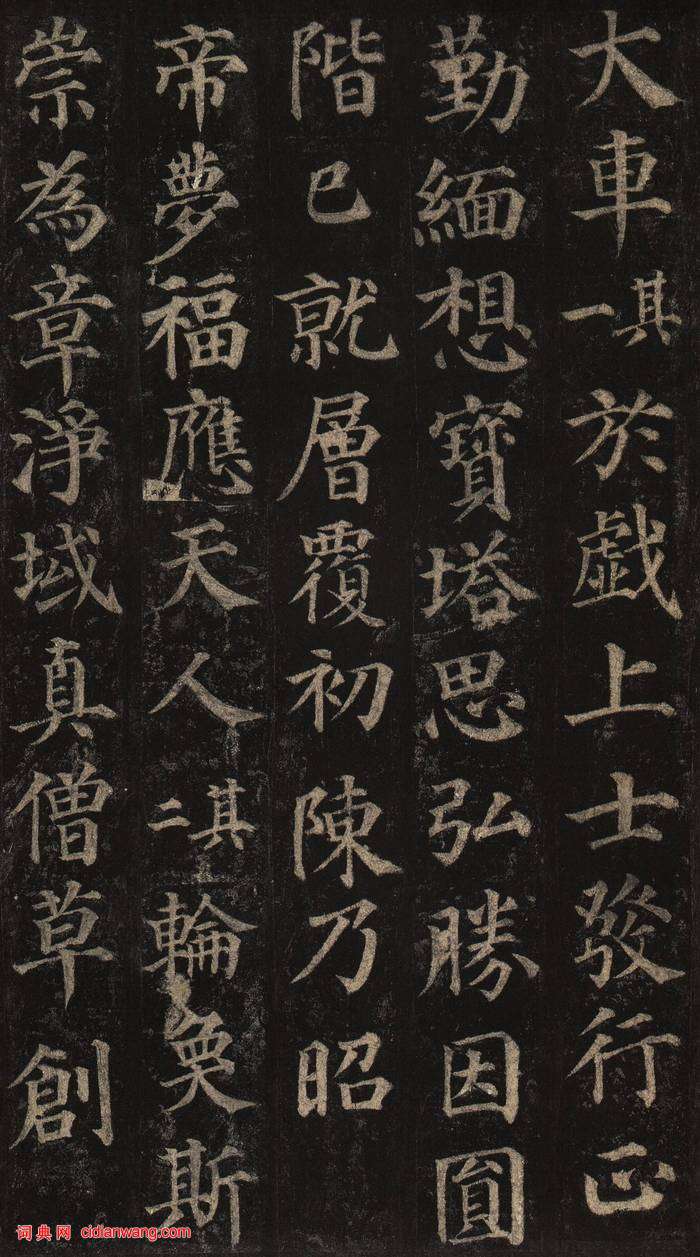 大車其一於戲上士發行正
勤緬想寶塔思弘勝因圓
階已就層覆初陳乃昭
帝夢福應天人其二輪奐斯
崇為章淨域真僧草創
词典网 cidianwang.com